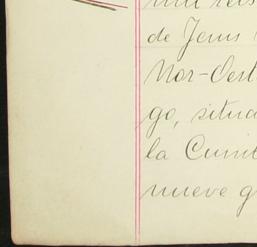 de Jesus
Nor-Oest
go, situa
la Cumb
nueve g